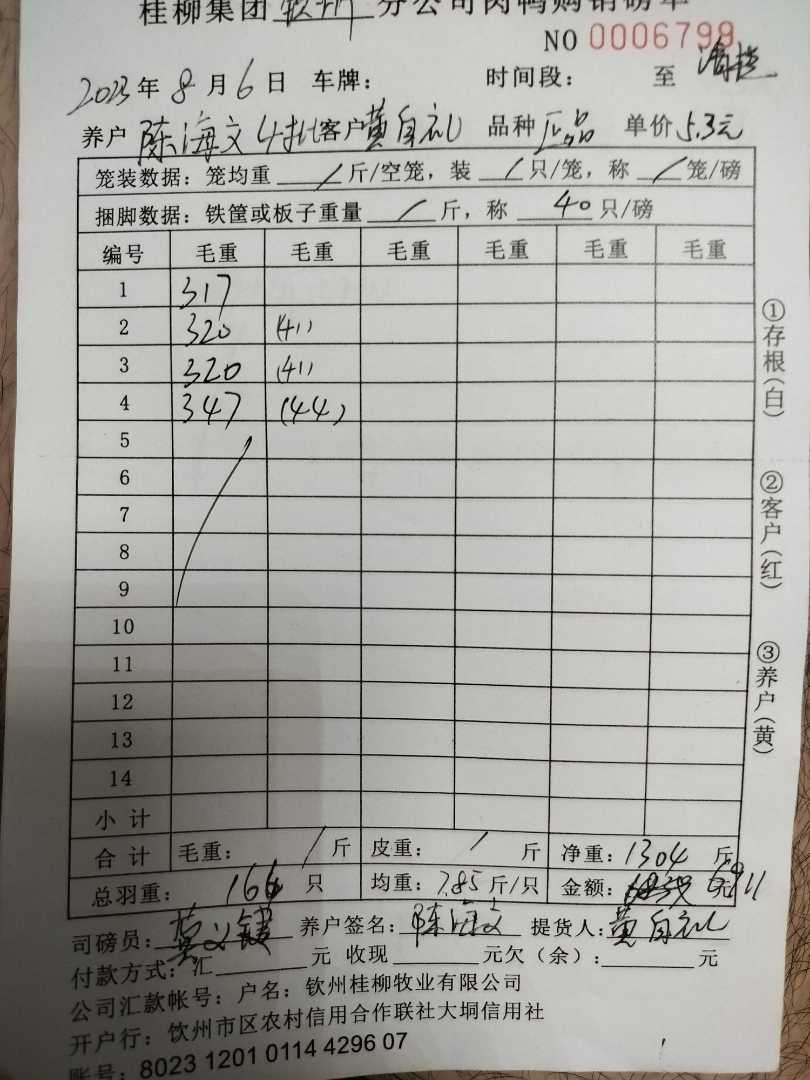 桂柳集团钦州分公司肉鸭购销磅单
NO 0006799
2023年8月6日 车牌: 时间段: 至 清挡
养户 陈海文4批 客户 黄自礼 品种 正品 单价 5.3元
笼装数据: 笼均重 / 斤/空笼, 装 / 只/笼, 称 / 笼/磅
捆脚数据: 铁筐或板子重量 / 斤, 称 40 只/磅
编号 毛重 毛重 毛重 毛重 毛重 毛重
1 317
2 320 (41)
3 320 (41)
4 347 (44)
5
6
7
8
9
10
11
12
13
14
小计
合计 毛重: / 斤 皮重: / 斤 净重: 1304 斤
总羽重: 166 只 均重: 7.85 斤/只 金额: 6911 元
司磅员: 养户签名: 陈海文 提货人: 黄自礼
付款方式: 汇 元 收现 元欠(余): 元
公司汇款帐号: 户名: 钦州桂柳牧业有限公司
开户行: 钦州市区农村信用合作联社大垌信用社
账号: 8023 1201 0114 4296 07
①存根(白)
②客户(红)
③养户(黄)